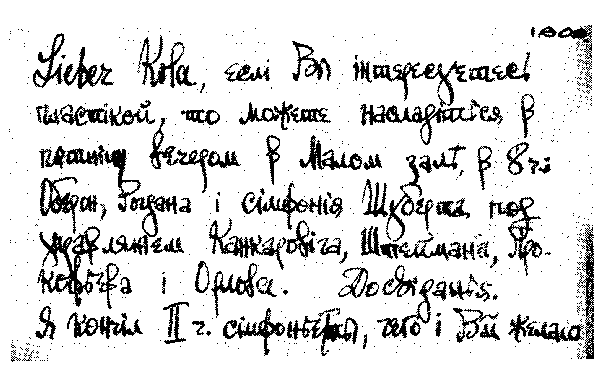 Lieber Kola, еслі Вы інтересуетесь
пластікой, то можете насладітся в
пятніцу вечером в Малом залі, в 8 ч.
Оберон, Родана і сімфонія Шуберта под
управляніем Канкаровіча, Штеймана, Про-
кофьева і Орлова. Досвіданія.
Я кончіл II ч. сімфоньетты, чего і Вам желаю